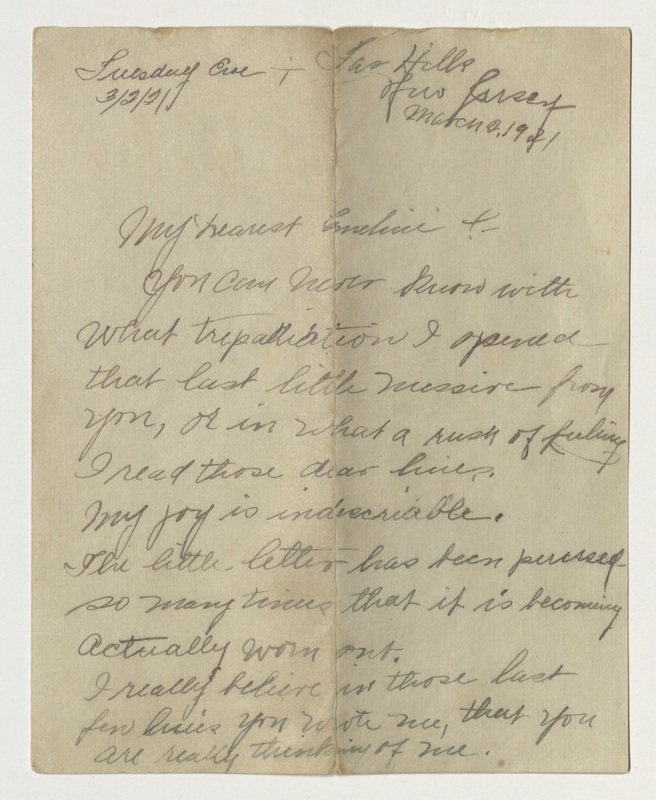 Tuesday Eve
Far Hills
3/2/21
New Jersey
March 2, 1921
My Dearest Emeline
You can never know with
what tripadiation I opened
that last little missive from
you, or in what a rush of feeling
I read those dear lines.
My joy is indescriable.
The little letter has been perused
so many times that it is becoming
actually worn out.
I really believe in those last
few lines you wrote me, that you
are really thinking of me.